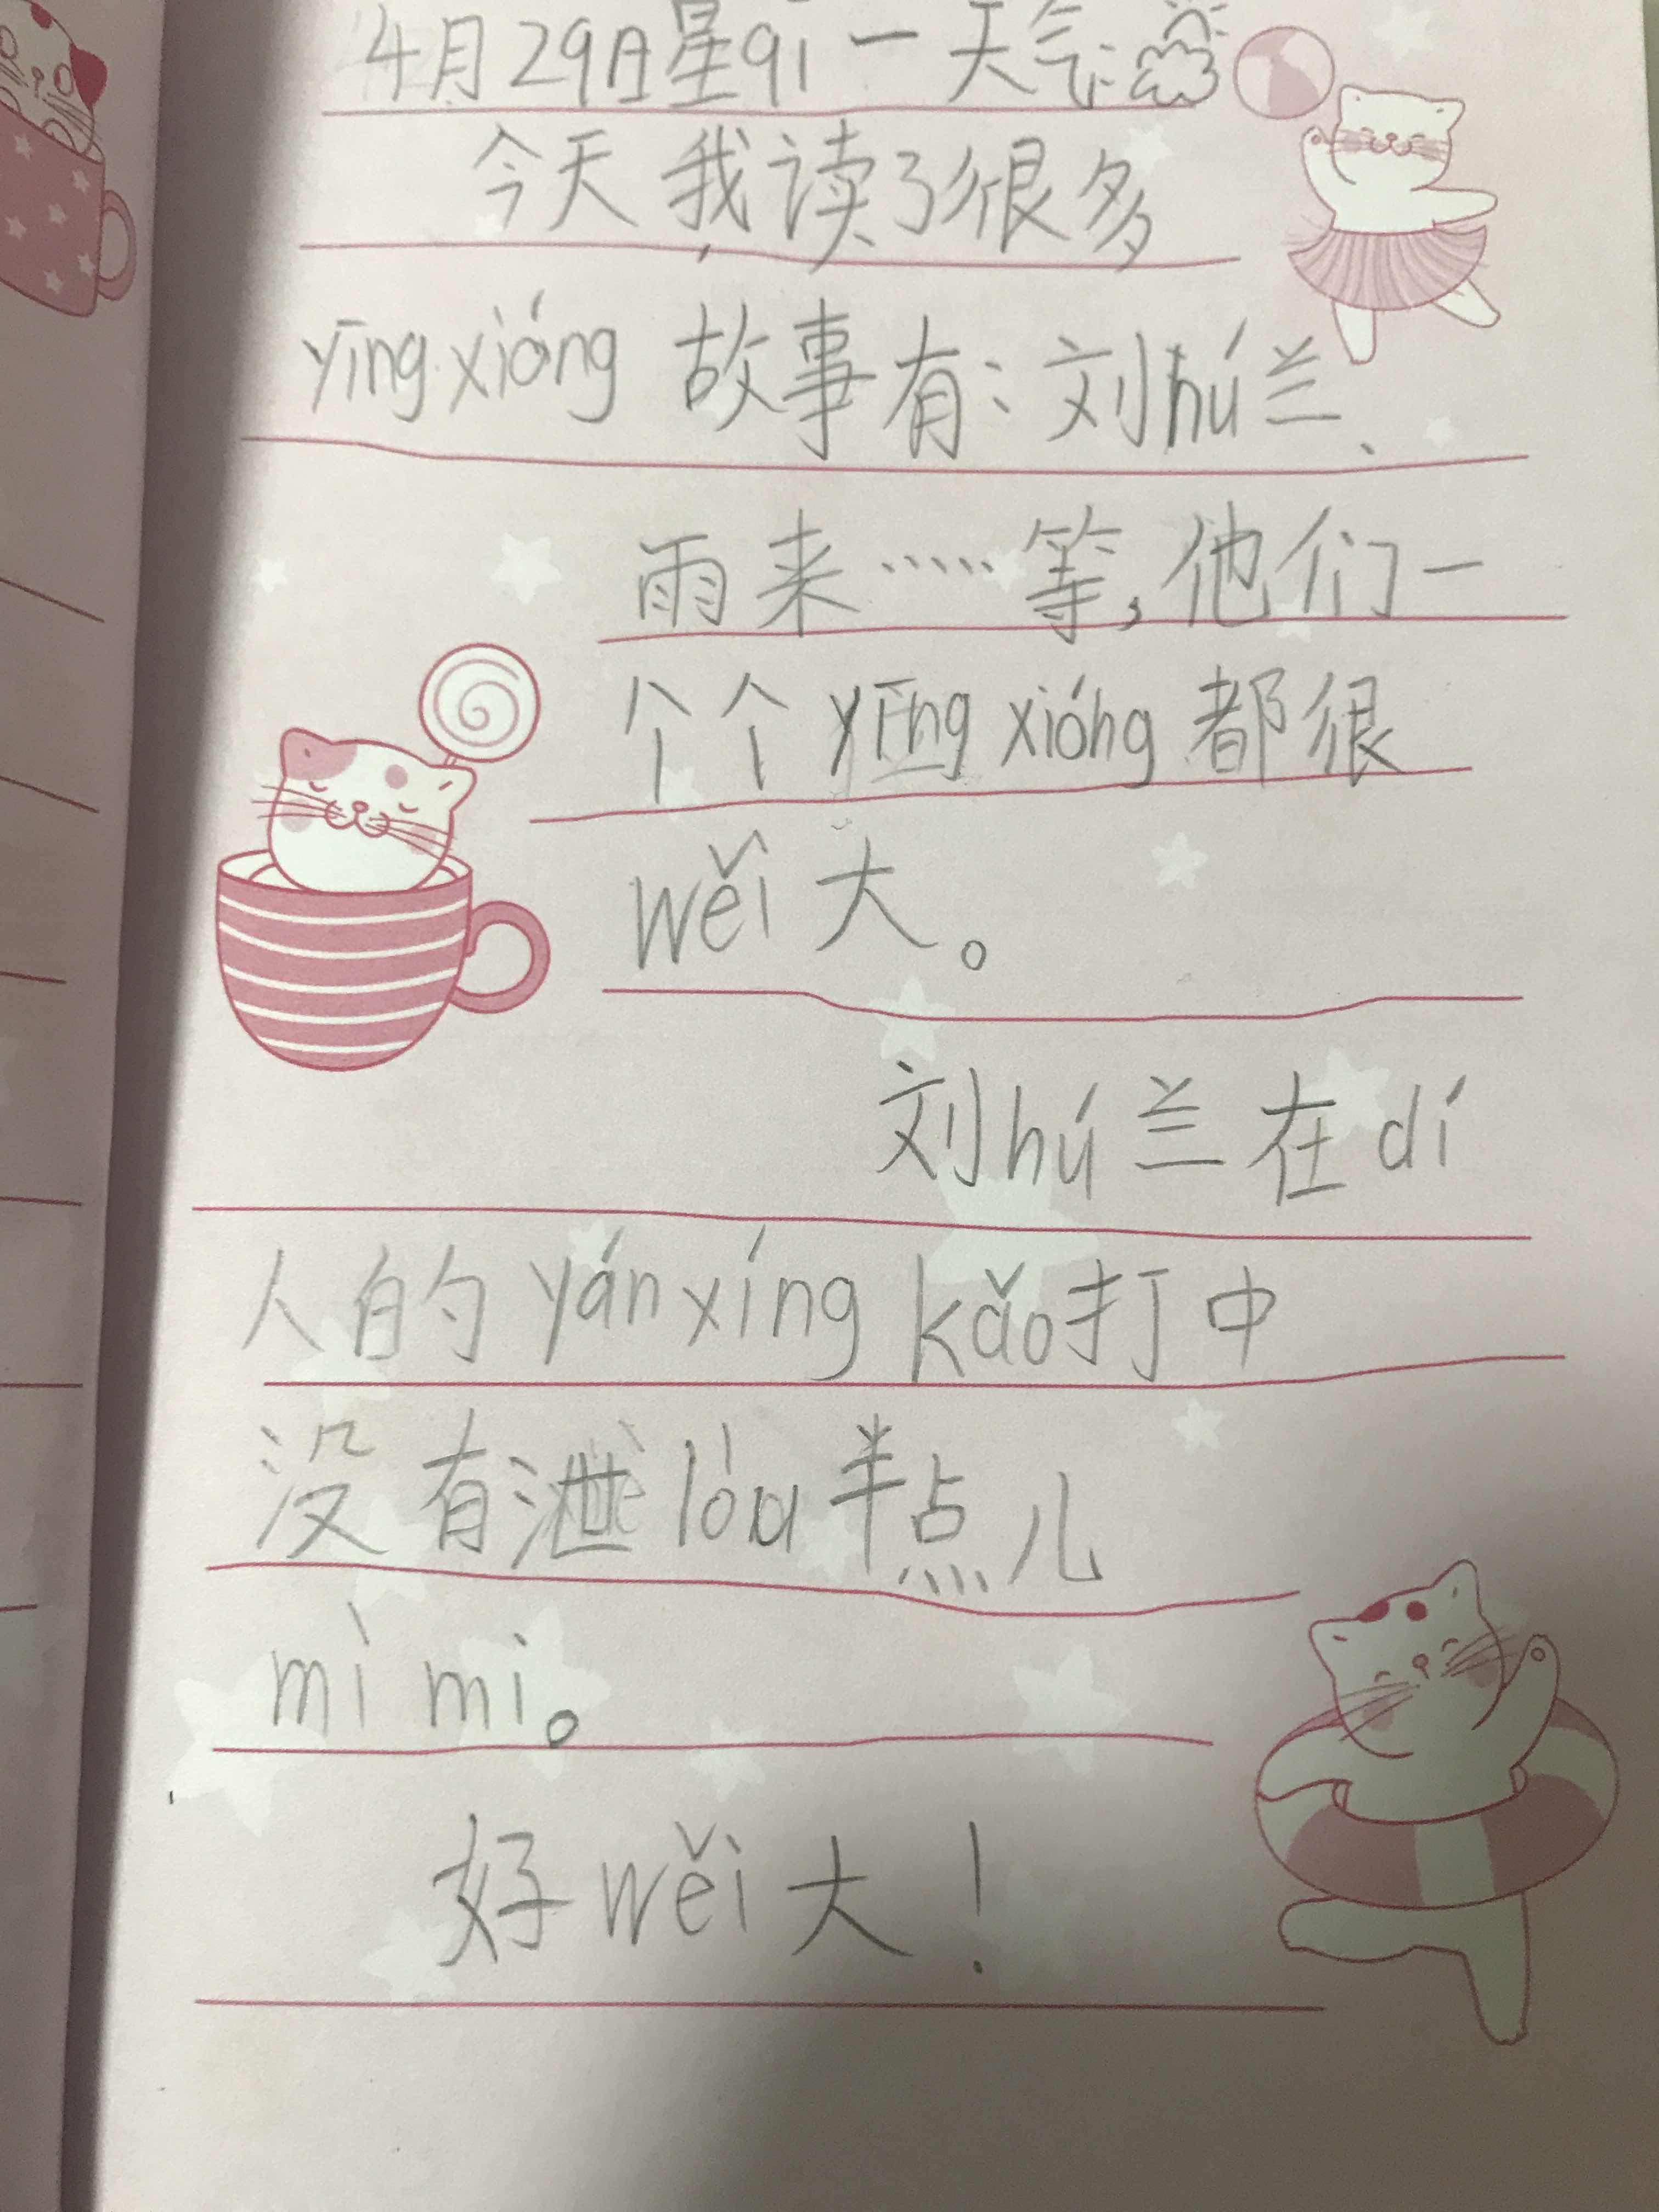 4月29日星qī一天气:
今天我读了很多
yīngxióng故事有:刘hú兰、
雨来……等,他们一
个个yīngxióng都很
wěi大。
刘hú兰在dí
人的yánxíngkǎo打中
没有泄lòu半点儿
mìmì。
好wěi大!